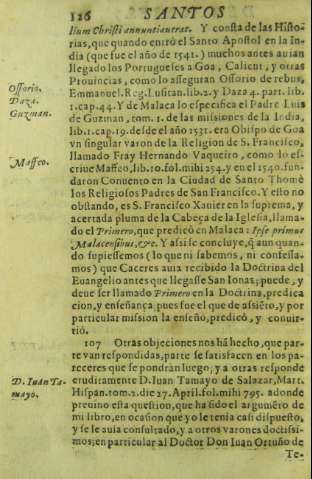 126 SANTOS
lium Christi annuntiantrat. Y consta de las Histo-
rias, que quando entrò el Santo Apostol en la In-
dia (que fue el año de 1541.) muchos antes auian
llegado los Portugueses a Goa, Calicut, y otras
Prouincias, como lo asseguran Ossorio de rebus,
Emmanuel. Reg. Lusitan. lib. 2. y Daza 4. part. lib.
1. cap. 44. Y de Malaca lo especifica el Padre Luis
de Guzman, tom. 1. de las missiones de la India,
lib. 1. cap. 19. desde el año 1531. era Obispo de Goa
vn singular varon de la Religion de S. Francisco,
llamado Fray Hernando Vaqueiro, como lo es-
criue Maffeo, lib. 10. fol. mihi 254. y en el 1540. fun-
daron Conuento en la Ciudad de Santo Thomè
los Religiosos Padres de San Francisco. Y esto no
obstando, es S. Francisco Xauier en la suprema, y
acertada pluma de la Cabeça de la Iglesia, llama-
do el Primero, que predicò en Malaca: Ipse primus
Malacensibus, &c. Y assi se concluye, q̃ aun quan-
do supiessemos (lo que ni sabemos, ni confessa-
mos) que Caceres auia recibido la Doctrina del
Euangelio antes que llegasse San Ionas; puede, y
deue ser llamado Primero en la Doctrina, predica
cion, y enseñança, pues fue el que de assiẽto, y por
particular mission la enseñò, predicò, y conuir-
tiò.
107 Otras objeciones nos hà hecho, que par-
te van respondidas, parte se satisfacen en los pa-
receres que se pondràn luego, y a otras responde
eruditamente D. Iuan Tamayo de Salazar, Mart.
Hispan. tom. 2. die 27. April. fol. mihi 795. adonde
preuino esta question, que ha sido el argumẽto de
mi libro, en ocasion que yo le tenia casi dispuesto,
y se le auia consultado, y a otros varones doctissi-
mos; en particular al Doctor Don Iuan Ortuño de
Te-
Ossorio.
Daza.
Guzman.
Maffeo.
D. Iuan Ta-
mayo.